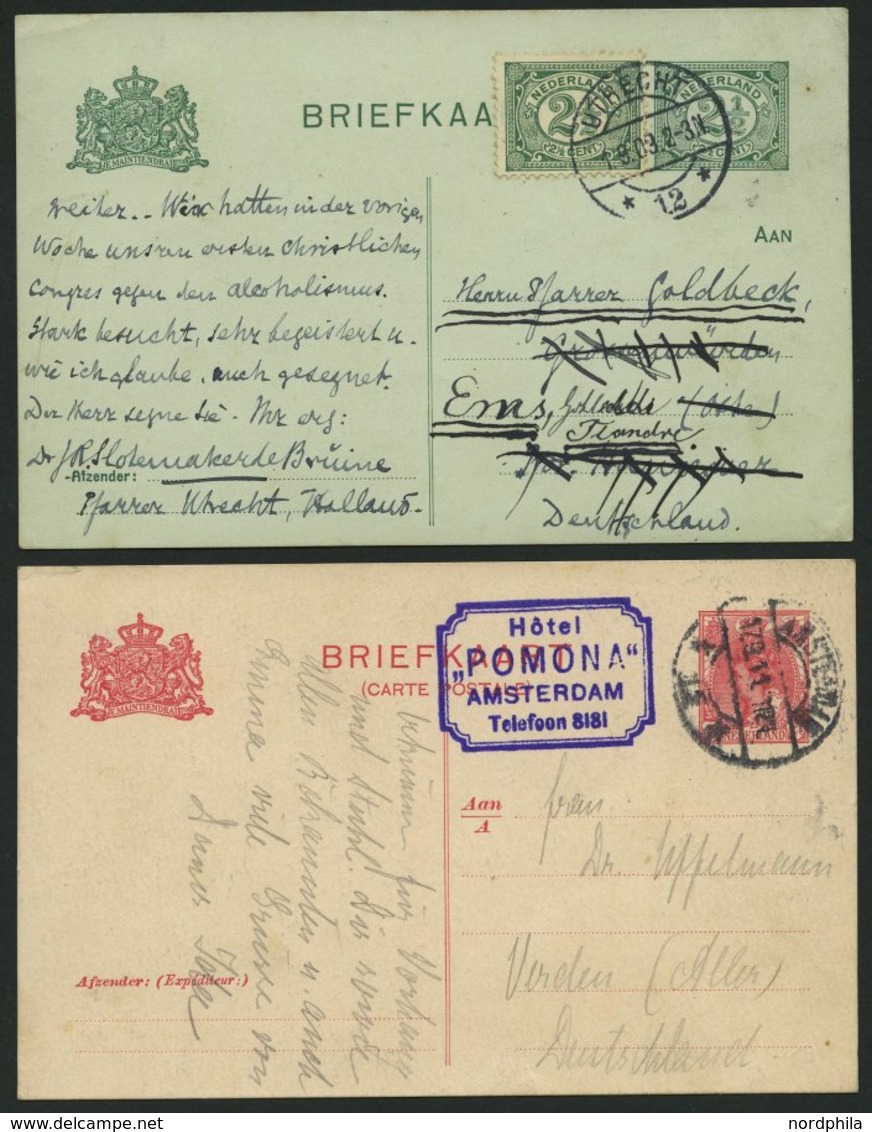 BRIEFKAA
NEDERLAND
2½
2½ CENT
NEDERLAND
2½ CENT
UTRECHT
9.09.2-3.N.
* 12 *
JE MAINTIENDRAI
weiter.. Wir hatten in der vorigen
Woche unsren ersten christlichen
Congres gegen den alcoholismus.
Stark besucht, sehr begeistert u.
wie ich glaube, auch gesegnet.
Der Herr segne Sie. Ihr erg:
Dr J R Slotemaker de Bruine
-Afzender:
Pfarrer Utrecht, Holland-
AAN
Herrn Pfarrer Goldbeck,
Ems,
Deutschland.
JE MAINTIENDRAI
BRIEFKAART
(CARTE POSTALE)
Hôtel
„POMONA“
AMSTERDAM
Telefoon 8181
NEDERLAND
Aan
A
Frau
Dr. Uffelmann
Verden (Aller)
Deutschland.
Afzender: (Expéditeur:)
für
allen Bekannten u. auch
Emma viele Grüsse von
nordphila